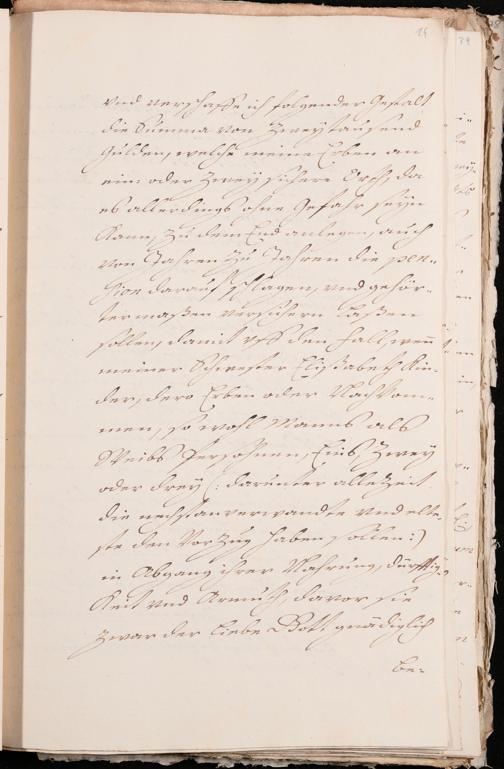 24
vnd verschaffe ich folgender Gestalt
die Summa von Zweytausend
Gulden, welche meine Erben an
ein oder Zwey sichere Orth, da
es allerdings ohne Gefahr seyn
Kann, zu dem End anlegen, auch
von Jahren zu Jahren die pen-
sion darauf schlagen, vnd gehör-
ter maßen versichern laßen
sollen, damit vff den fall, wen
meiner Schwester Elisabeth Kin-
der, dero Erben oder Nachkom-
men, so wohl Manns als
Weibs Persohnen, Eins, Zwey
oder drey (: darunter alle Zeit
die nechstanverwandte vnd elte-
ste den Vorzug haben sollen :)
in Abgang ihrer Nahrung, dürfftig-
Keit vnd Armuth, davor sie
zwar der liebe Gott gnädiglich
be-